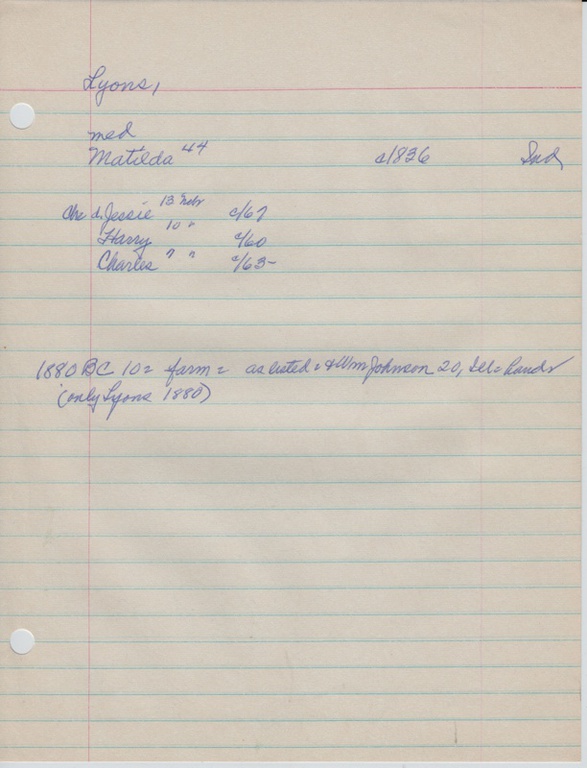 Lyons,
md
Matilda 44 c1836 Ind,
Chr d. Jessie 13 Nebr c/67
Harry 10 " c/60
Charles 7 " c/63-
1880 BC 10= farm = as listed = & Wm Johnson 20, Ill = hands
(only Lyons 1880)